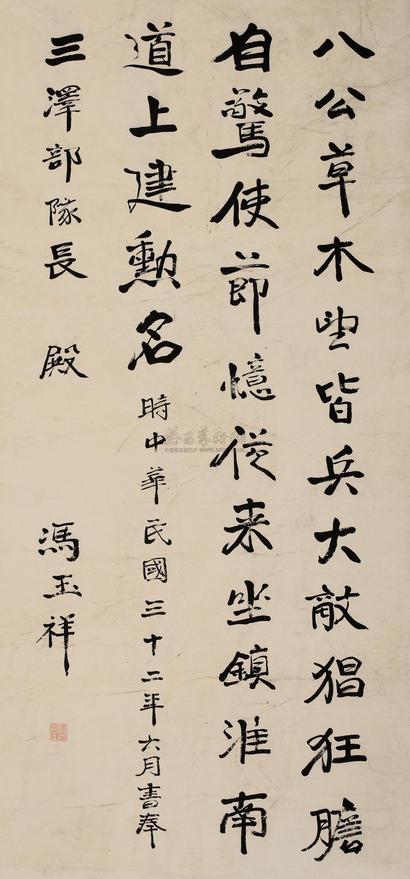 八公草木望皆兵大敵猖狂膽
自驚使節憶從来坐鎮淮南
道上建勳名
時中華民國三十二年六月書奉
三澤部隊長 殿
馮玉祥